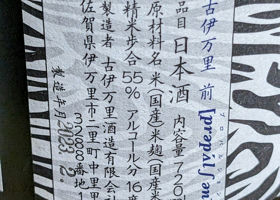 古伊万里 前 [prəpʌ́lʃən]
プロパルション
品目 日本酒 内容量720
原材料名 米(国産)米麹(国産米)
精米歩合55% アルコール分16度
製造者 古伊万里酒造有限会社
佐賀県伊万里市二里町中里甲
3288番地1
製造年月 2023. 2.